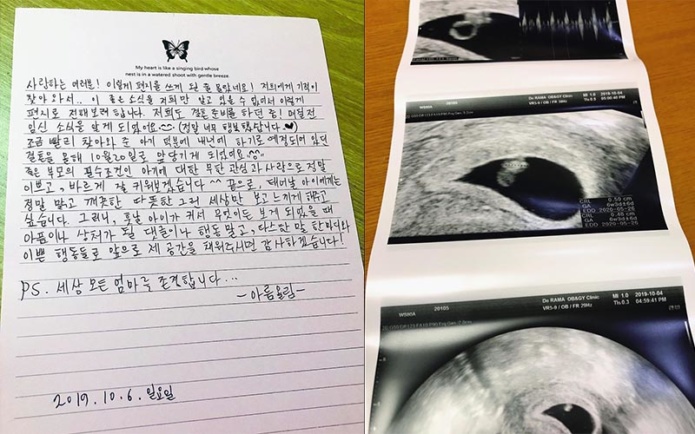 My heart is like a singing bird whose
nest is in a watered shoot with gentle breeze
사랑하는 여러분! 이렇게 편지를 쓰게 될 줄 몰랐네요! 저희에게 기적이
찾아와서.. 이 좋은 소식을 저희만 알고 있을 수 없어서 이렇게
편지로 전해보려합니다. 저희도 결혼준비를 하던 중! 며칠전
임신 소식을 알게 되었어요 (정말 너무 행복합니다.♥)
조금 빨리 찾아와 준 아기 덕분에 내년에 하기로 예정되어 있던
결혼을 올해 10월20일로 앞당기게 되었어요^^
좋은 부모의 필수조건인 아기에 대한 무한 관심과 사랑으로 정말
이쁘고, 바르게 잘 키워보겠습니다 ^^ 끝으로, 태어날 아이에게는
정말 맑고 깨끗한 따듯한 그런 세상만 보고 느끼게 해주고
싶습니다. 그러니, 훗날 아이가 커서 무엇이든 보게 되었을 때
아픔이나 상처가 될 대화들이나 행동 말고, 따스한 말 한마디와
이쁜 행동들로 앞으로 제 공간을 채워주시면 감사하겠습니다!
PS. 세상 모든 엄마를 존경합니다...
-아름올림-
2019.10.6. 일요일
De RAMA OB&GY Clinic
2019-10-04
VR5-9 / OB / FR 29Hz
CRL 0.50 cm
GA 6w3d±6d
EDD 2020-05-26
CRL 0.48 cm
GA
EDD 2020-05-26
WSWIA
20105
De RAMA OB&GY Clinic
VR5-9 / OB / FR 29Hz
MI 1.0
TIs 0.3
2019-10-04
04:59:41 PM